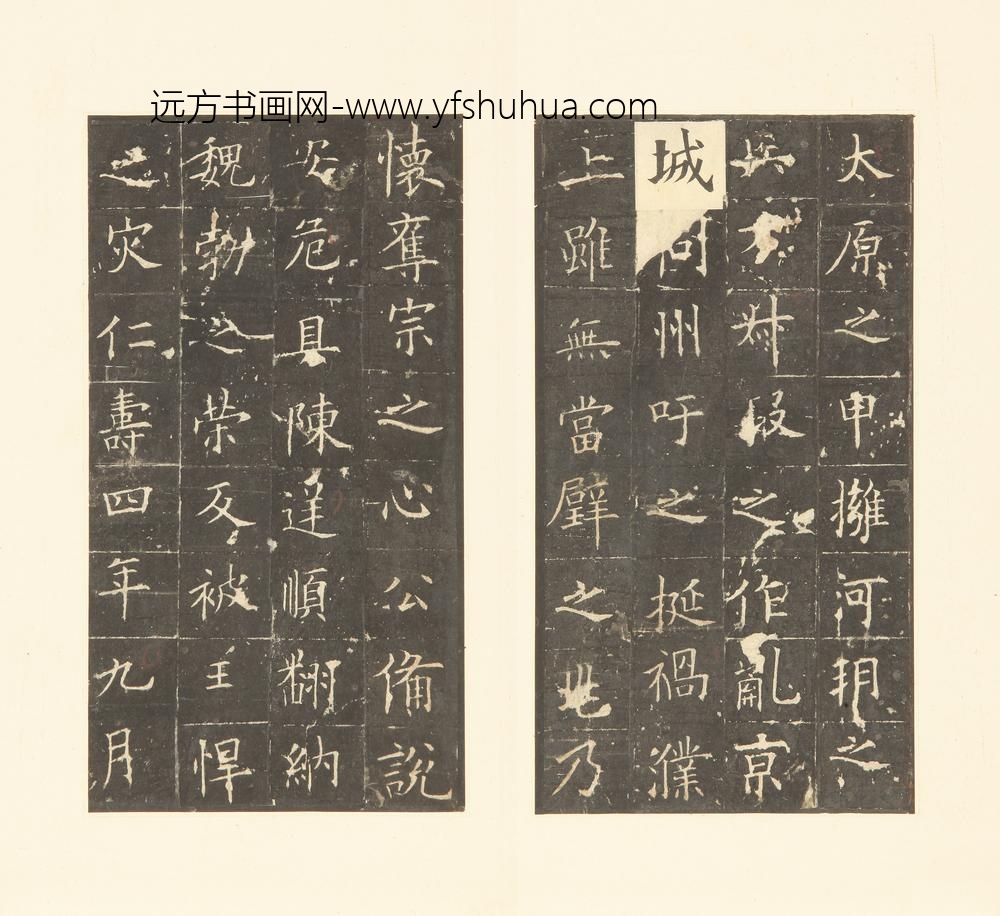 远方书画网-www.yfshuhua.com
太原之甲擁河朔之
兵方叔段之作亂京
城同州吁之挺禍濮
上雖無當璧之兆乃
懷奪宗之心公備說
安危具陳逆順翻納
魏勃之策反被王悍
之灾仁壽四年九月